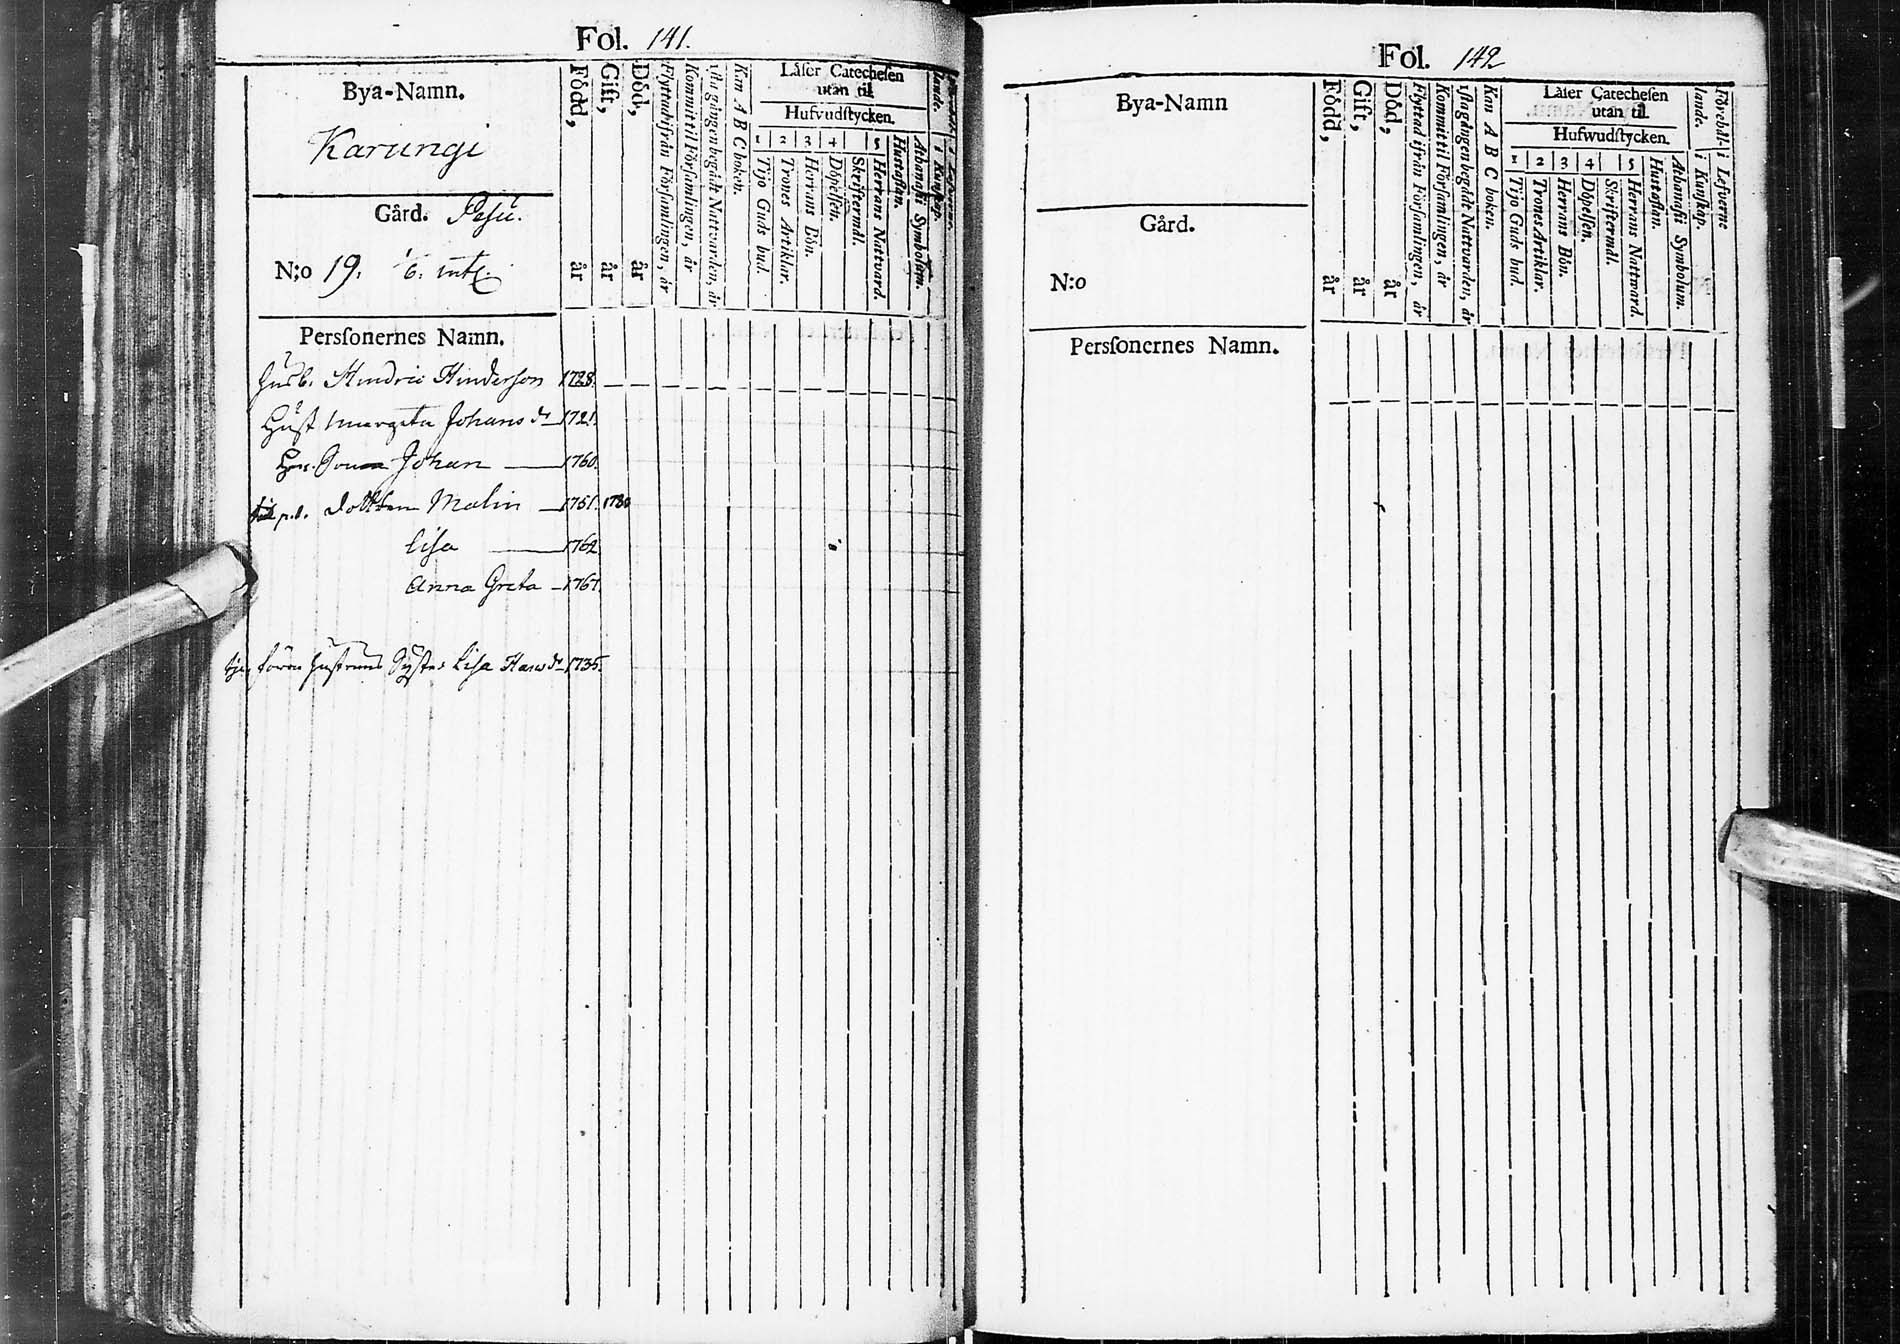 Fol. 141.
Bya-Namn.
Karungi
Gård. Pesu.
N;o 19.
Född, år
Gift, år
Död, år
Flyttad ifrån Församlingen, år
Kommit til Församlingen, år
gången begådt Nattvarden, år
Kan A B C boken.
Läser Catechesen
utan til
Hufvudstycken.
1 2 3 4 5
Tijo Guds bud.
Trones Artiklar.
Herrans Bön.
Döpelsen.
Skriftermål.
Herrans Nattvard.
Hustaflan.
Athanasii Symbolum.
i Kunskap.
i Lefverne.
Personernes Namn.
Husb. Hindric Hinderson 1728.
Hust Margeta Johans dr 1721.
Sonen Johan 1760.
p.b. dottren Malin 1751. 1780
Lisa 1762
Anna Greta 1767.
hustruns Syster Lisa Hans dr 1735.
Fol. 142
Bya-Namn
Gård.
N:o
Född, år
Gift, år
Död, år
Flyttad ifrån Församlingen, år
Kommit til Församlingen, år
gången begådt Nattvarden, år
Kan A B C boken.
Läser Catechesen
utan til.
Hufwudstycken.
1 2 3 4 5
Tijo Guds bud.
Trones Artiklar.
Herrans Bön.
Döpelsen.
Skriftermål.
Herrans Nattward.
Hustaflan.
Athanasii Symbolum.
Förehållande. i Kunskap.
i Lefverne
Personernes Namn.